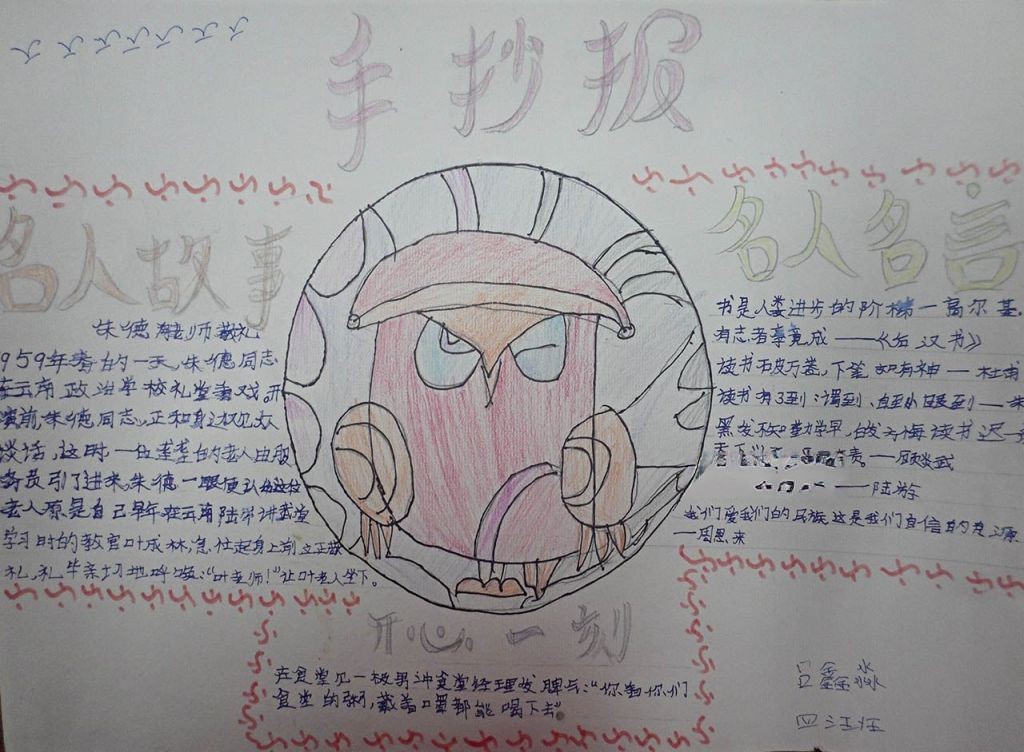 手抄报
名人故事
朱德 师敬礼
959年春的一天,朱德同志
在云南政治学校礼堂看戏,开
演前,朱德同志正和身边观众
谈话,这时,一位老人由服
务员引了进来,朱德一眼便认
老人原是自己早年在云南陆军讲武堂
学习时的教官叶成林,急忙起身上前立正敬
礼,礼毕亲切地呼 :“叶老师!”让叶老人坐下。
名人名言
书是人类进步的阶梯一高尔基.
有志者事竟成——《后汉书》
读书破万卷,下笔如有神——杜甫
读书有3到:
黑发不知勤学早,白 悔读书迟一
责——顾炎武
——陆游
我们爱我们的民族这是我们自信的 源
—周恩来
开心一刻
在食堂见一极男冲食堂经理发脾气:“你看你们
食堂的粥,戴着口罩都能喝下去”。
吕鑫淼